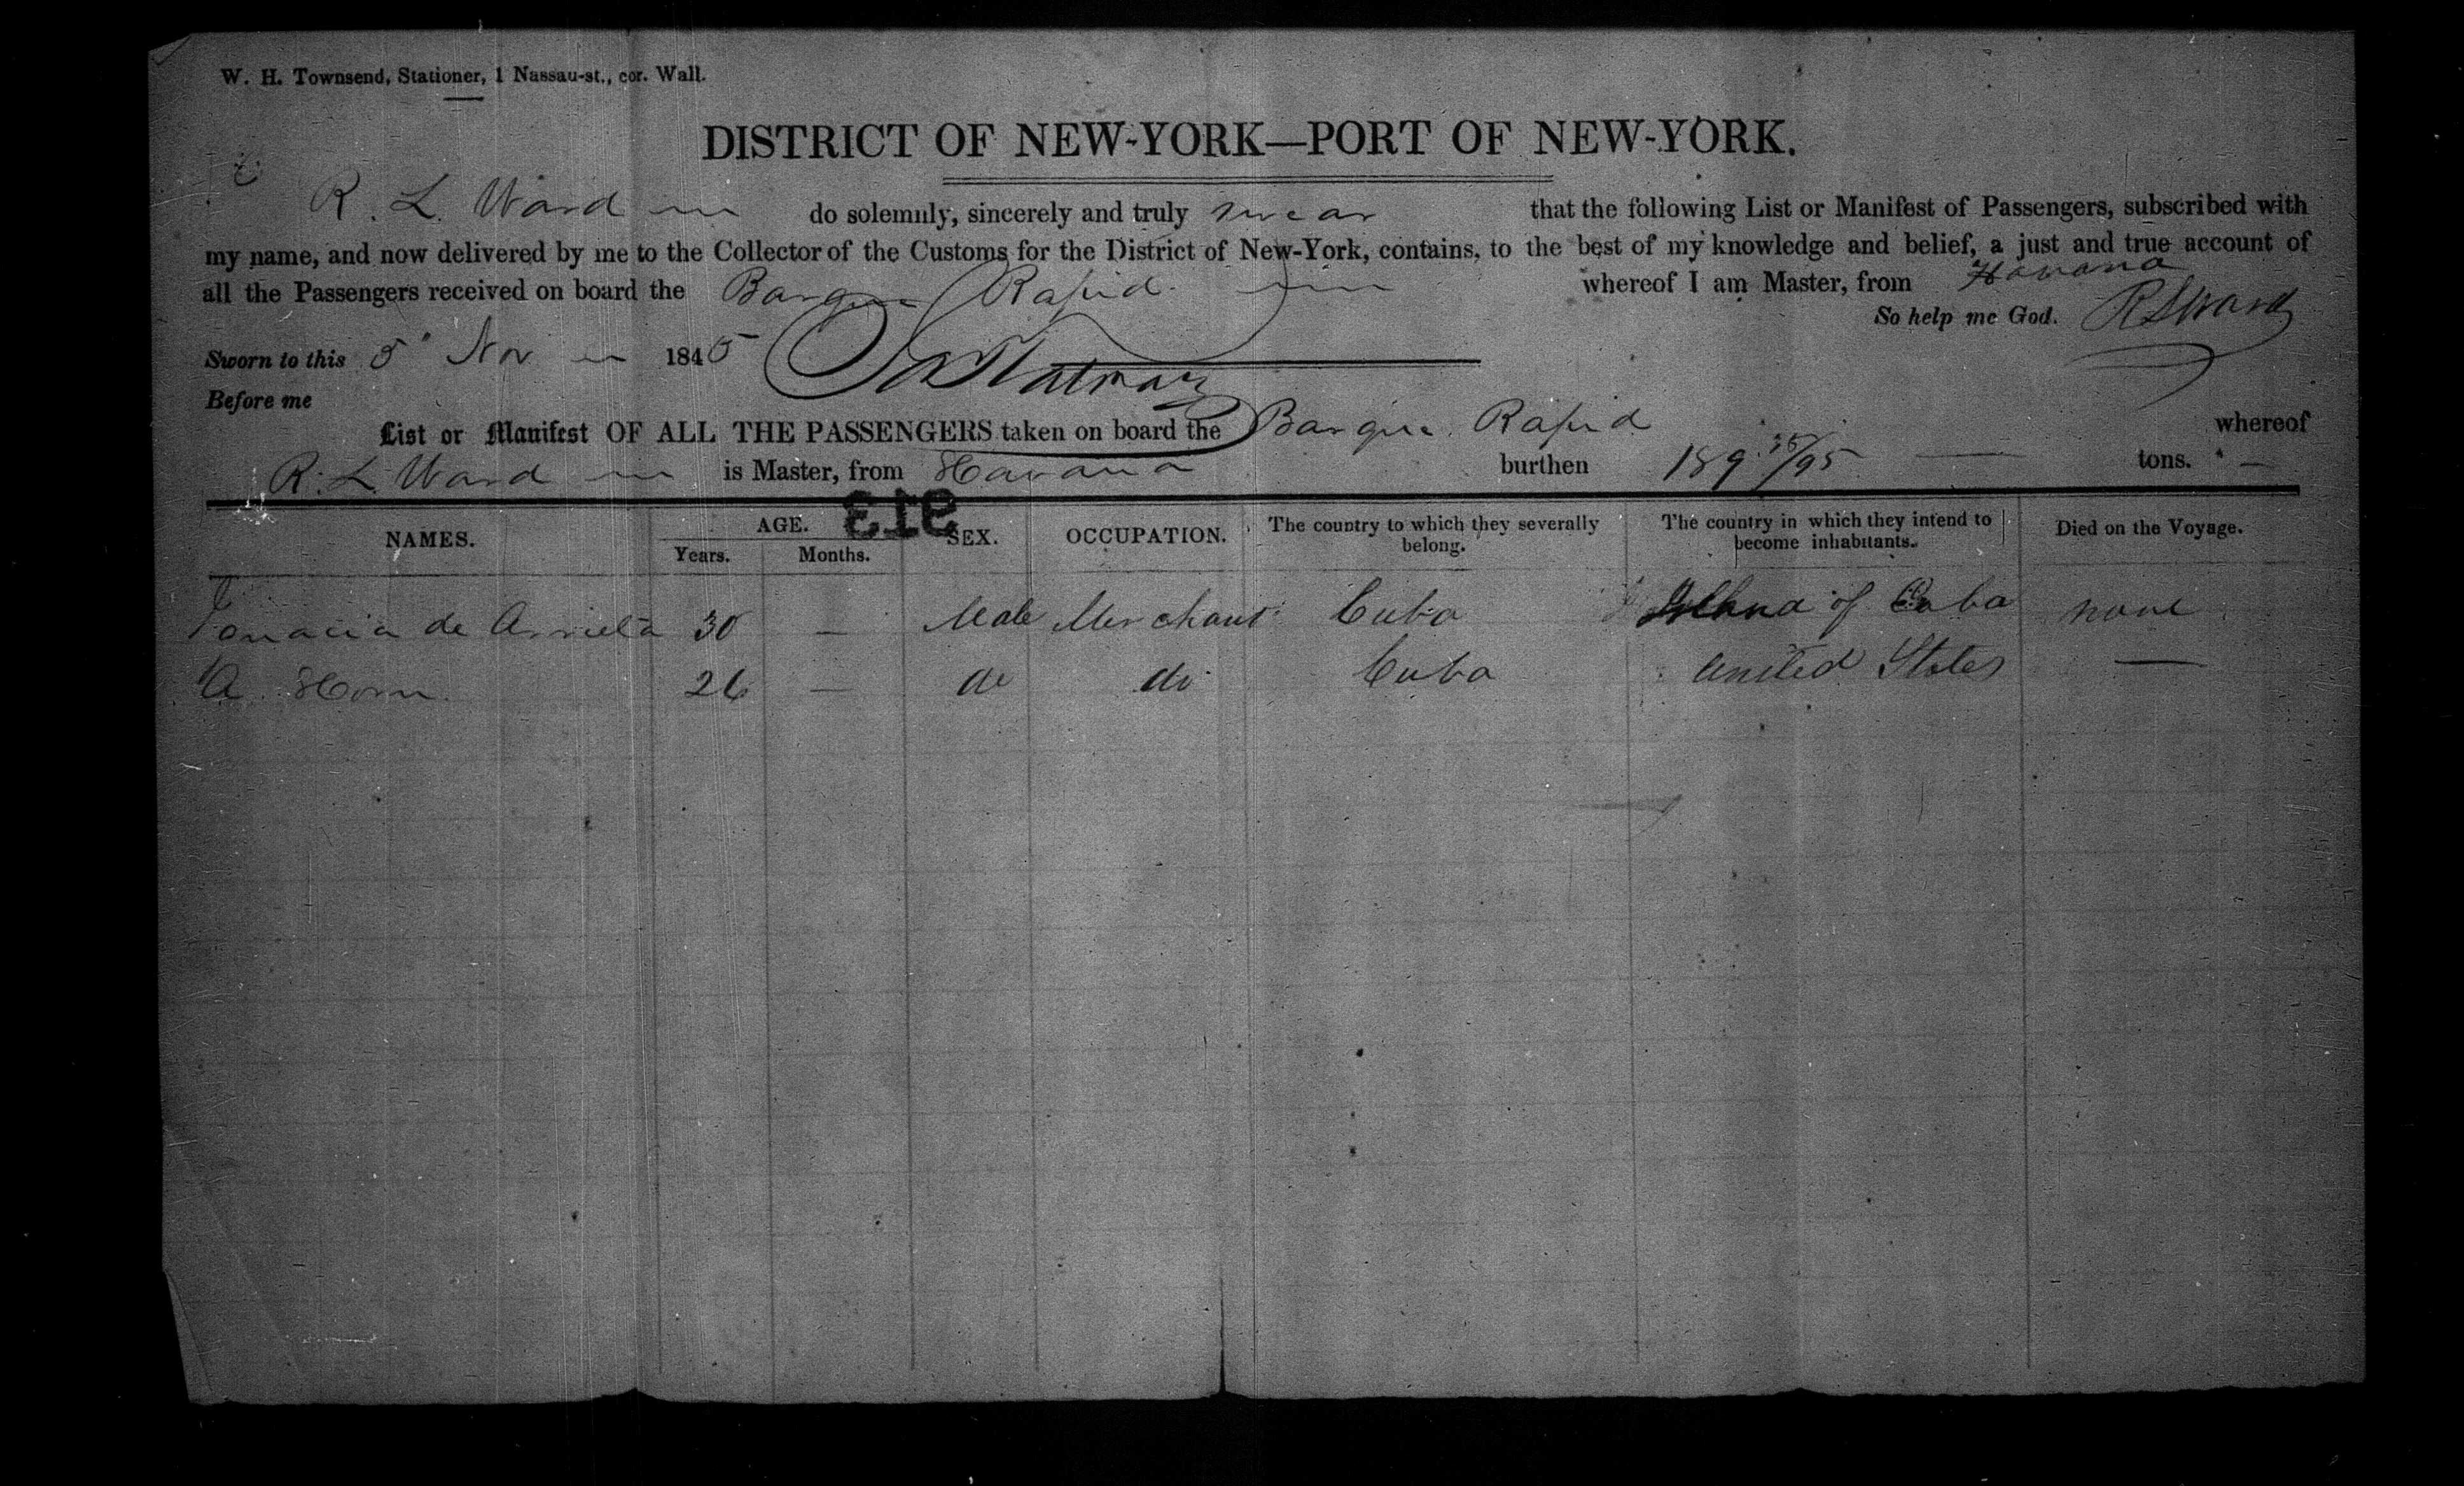 W. H. Townsend, Stationer, 1 Nassau-st., cor. Wall.
DISTRICT OF NEW-YORK—PORT OF NEW-YORK.
R. L. Ward do solemnly, sincerely and truly swear that the following List or Manifest of Passengers, subscribed with
my name, and now delivered by me to the Collector of the Customs for the District of New-York, contains, to the best of my knowledge and belief, a just and true account of
all the Passengers received on board the Barque Rapid whereof I am Master, from Havana
So help me God. R L Ward
Sworn to this 5 Nov 1845
Before me
List or Manifest OF ALL THE PASSENGERS taken on board the Barque Rapid whereof
R. L. Ward is Master, from Havana burthen 189 /95 tons.
913
NAMES. AGE. Years. Months. SEX. OCCUPATION. The country to which they severally belong. The country in which they intend to become inhabitants. Died on the Voyage.
de Arrieta 30 — Male Merchant Cuba Island of Cuba none
A. Horn 26 — do do Cuba United States —